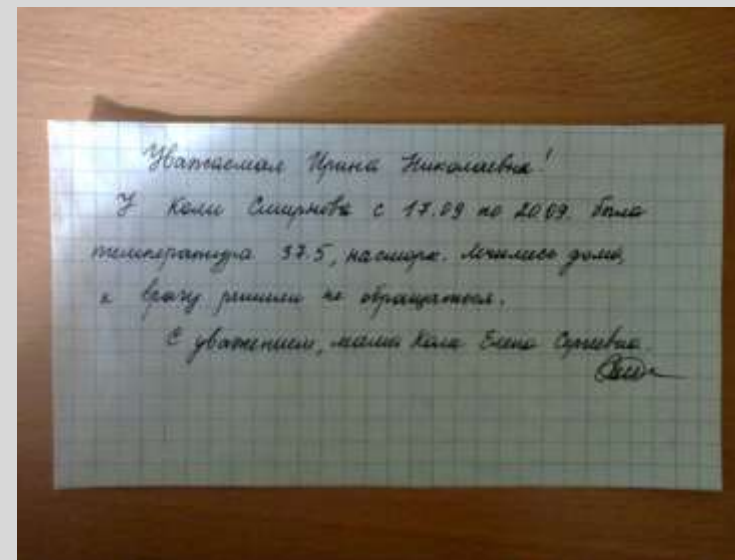 Уважаемая Ирина Николаевна!
У Коли Смирнова с 17.09 по 20.09. была
температура 37.5, насморк. Лечились дома,
к врачу решили не обращаться.
С уважением, мама Коли Елена Сергеевна.